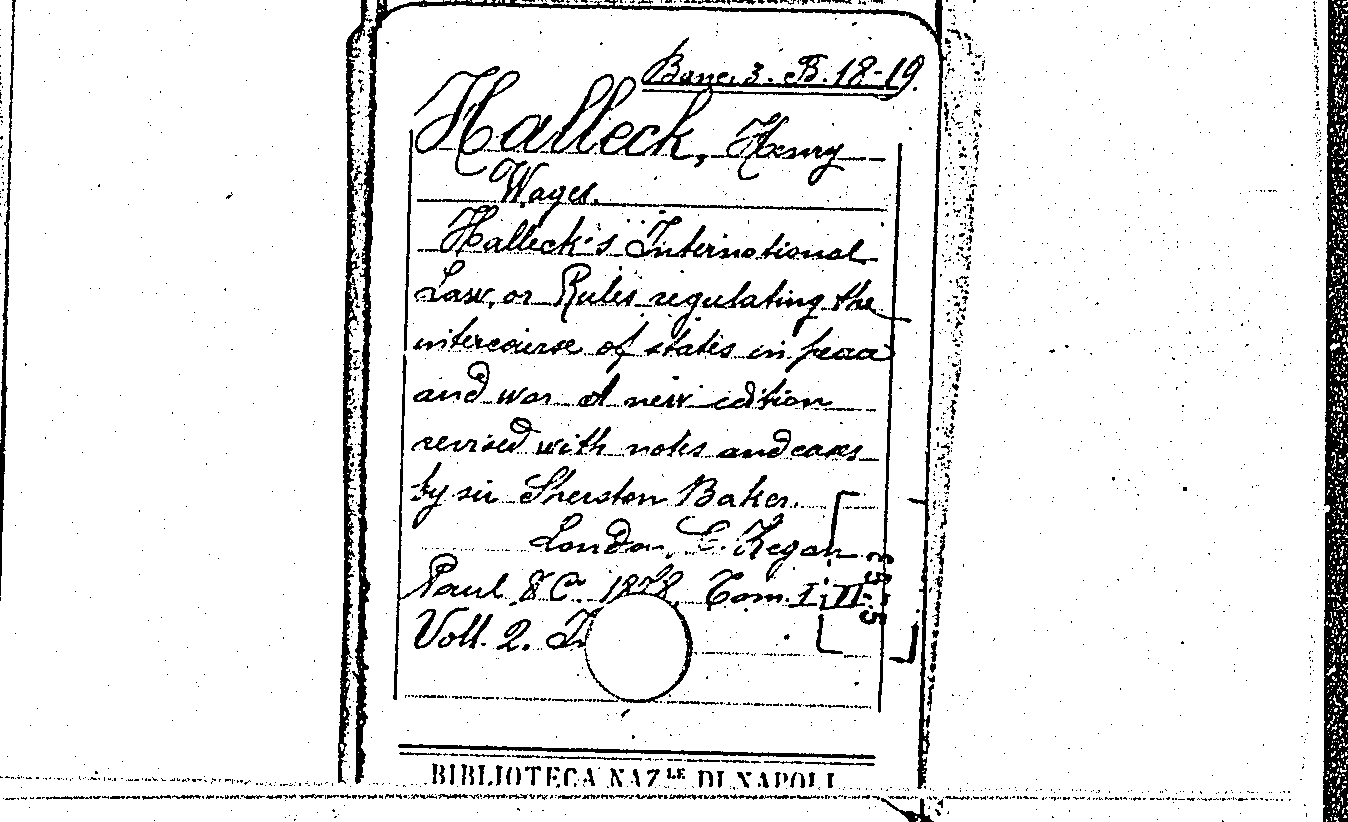 Banc. 3. B. 18-19.
Halleck, Henry
Wages.
Halleck's International
Law, or Rules regulating the
intercourse of states in peace
and war. A new edition
revised with notes and cases
by sir Sherston Baker.
London, C. Kegan
Paul & C.° 1878. Tom. I, II
Voll. 2.
BIBLIOTECA NAZ.LE DI NAPOLI